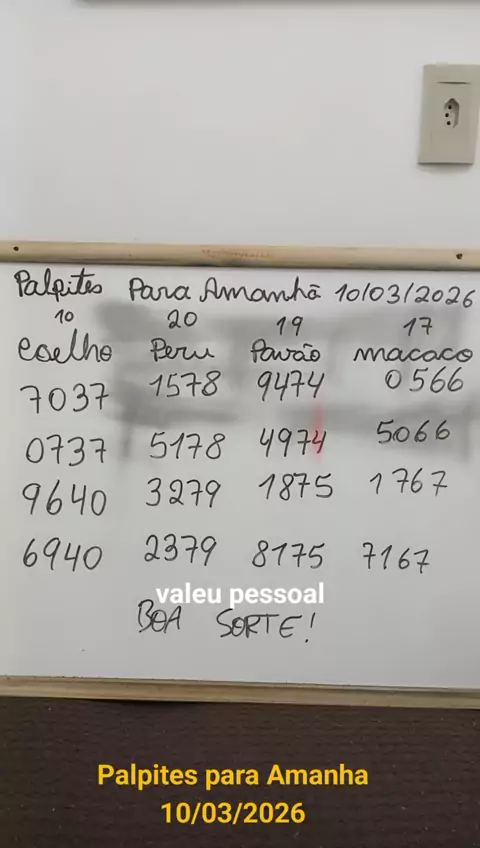 Palpites Para Amanhã 10/03/2026
10 20 19 17
Coelho Peru Pavão macaco
7037 1578 9474 0566
0737 5178 4974 5066
9640 3279 1875 1767
6940 2379 8175 7167
valeu pessoal
BOA SORTE!
Palpites para Amanha
10/03/2026